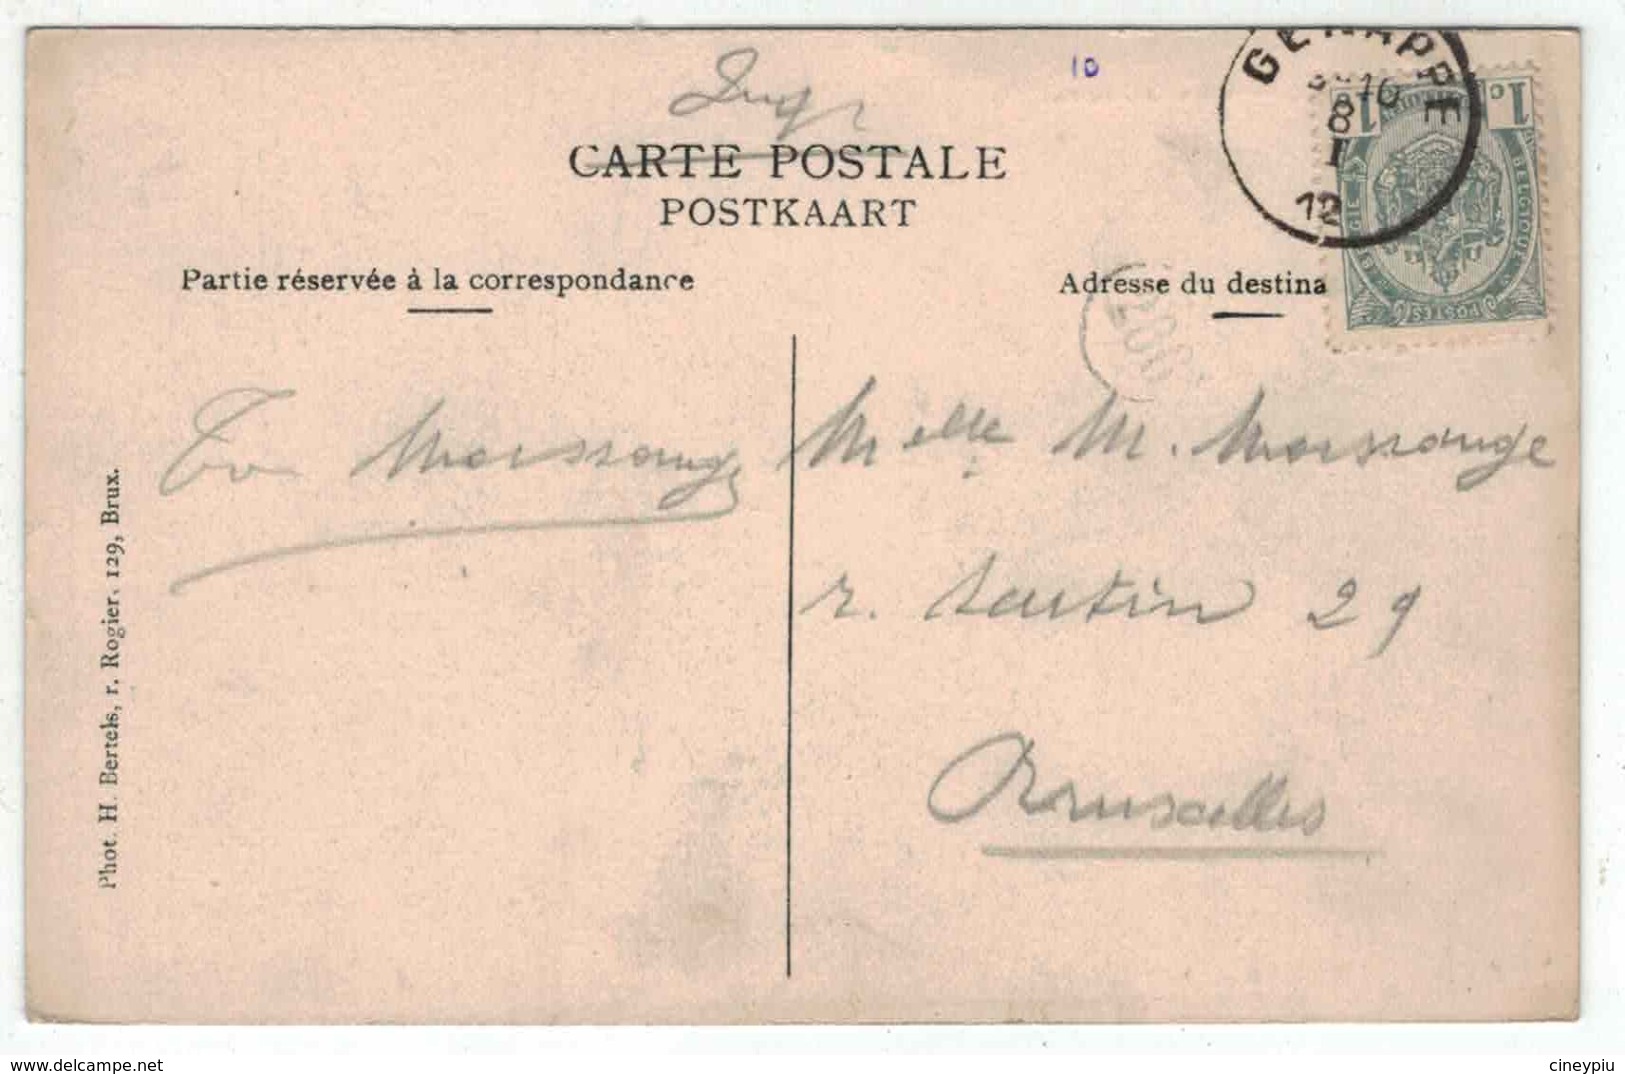 10
CARTE POSTALE
POSTKAART
GENAPPE
10
8
I
12
1c 1
BELGIQUE
POSTES
Partie réservée à la correspondance
Adresse du destina
286
Melle M.
r. 29
Bruxelles
Phot. H. Bertels, r. Rogier, 129, Brux.
delcampe.net
cineypiu